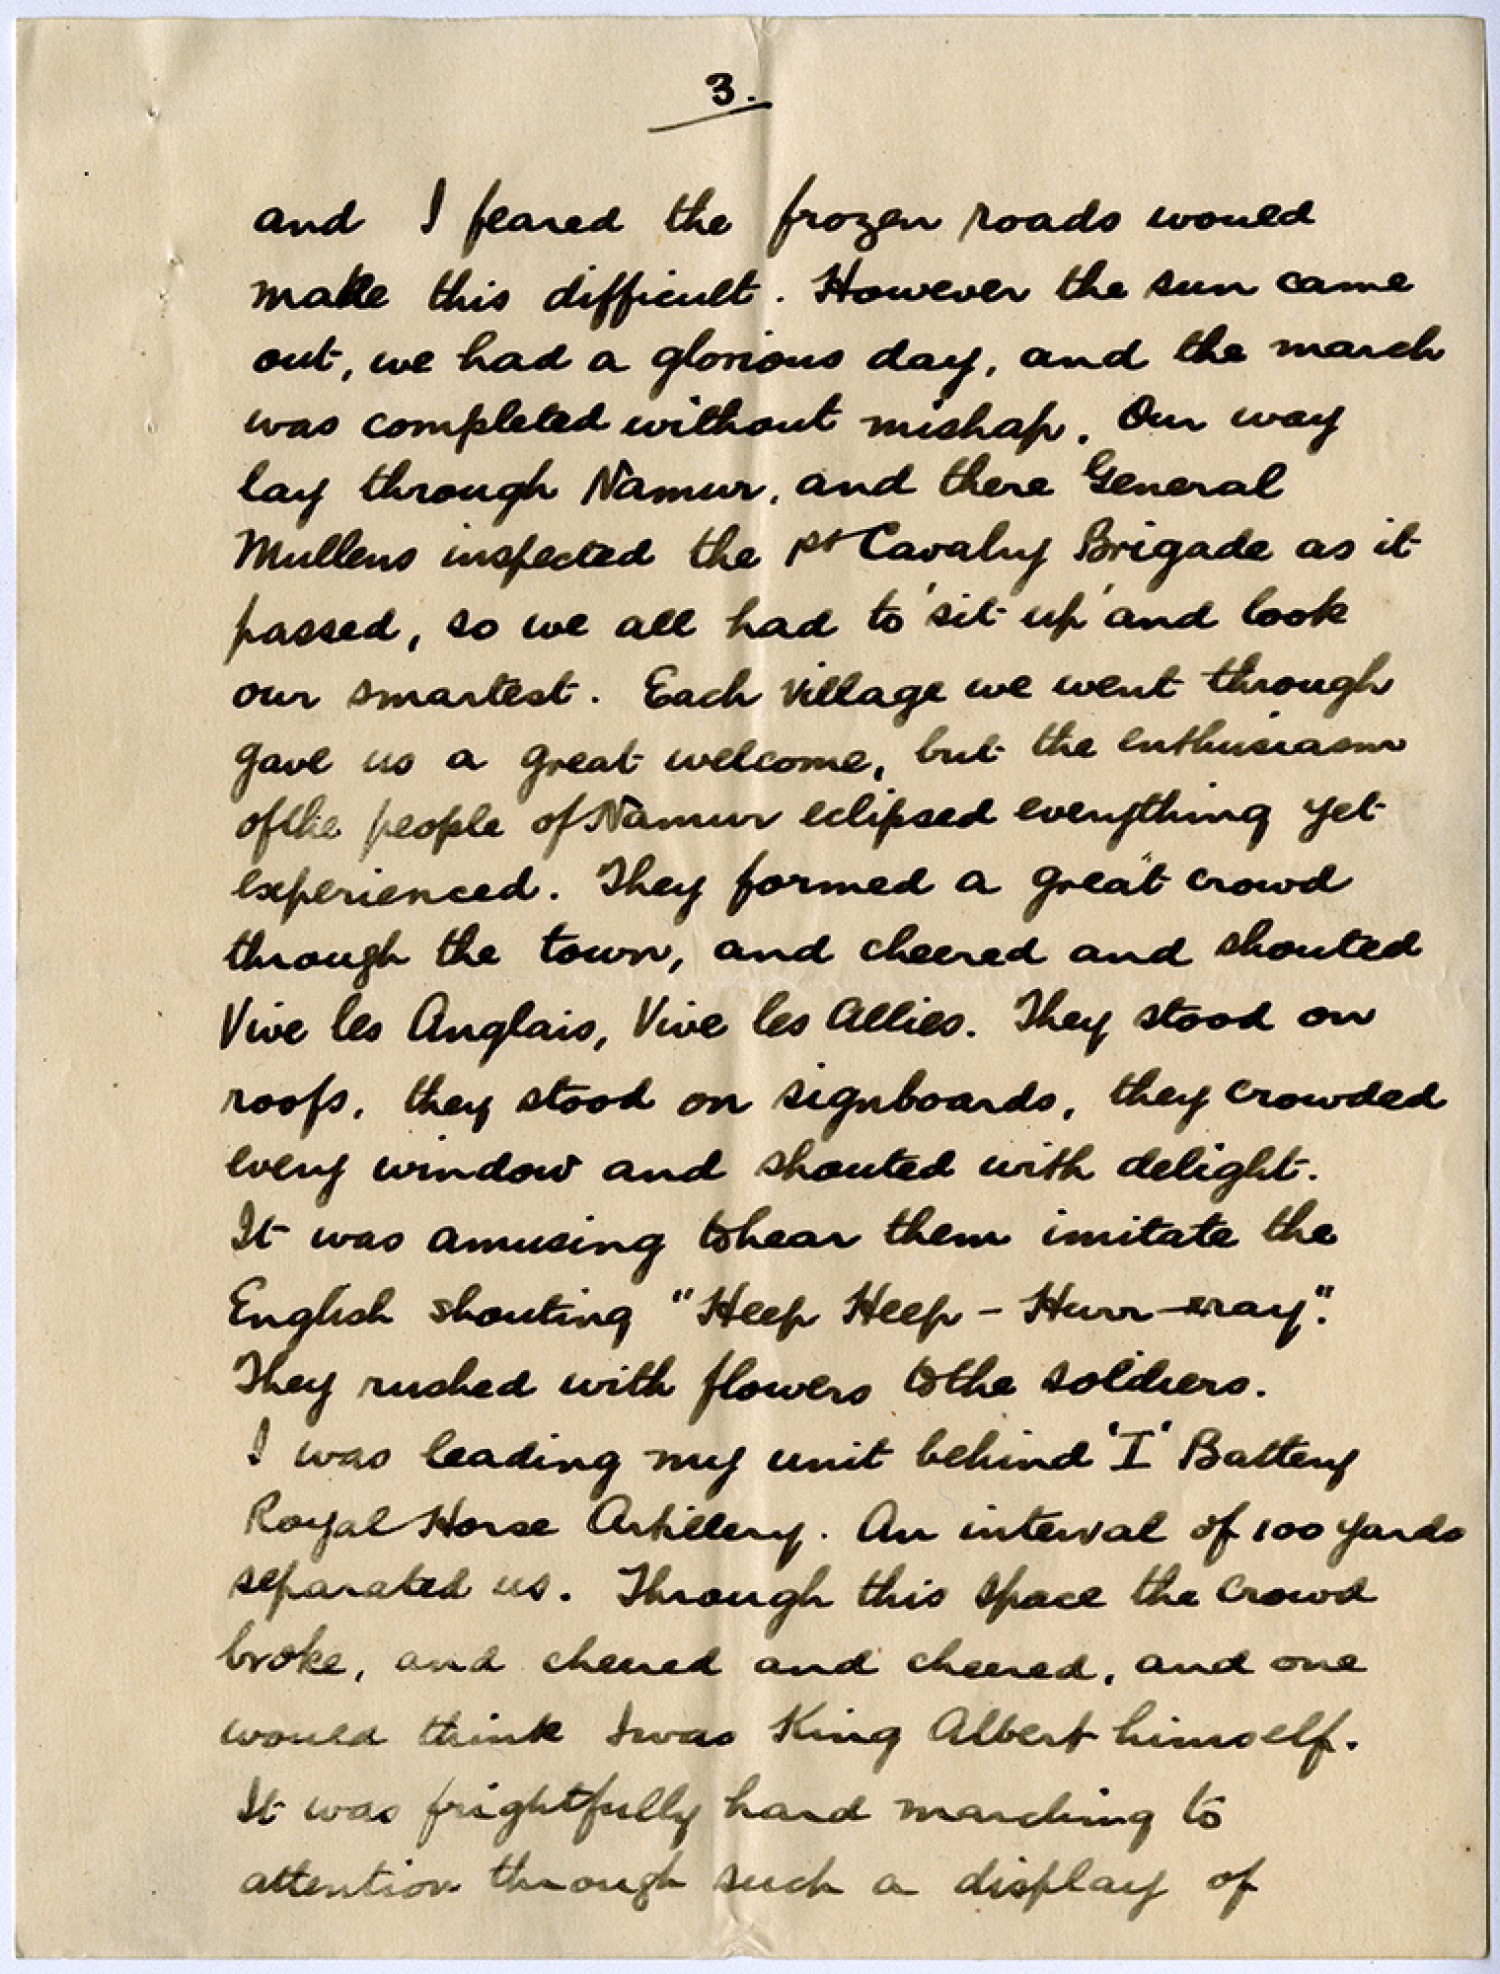 3.
and I feared the frozen roads would
make this difficult. However the sun came
out, we had a glorious day, and the march
was completed without mishap. Our way
lay through Namur, and there General
Mullens inspected the 1st Cavalry Brigade as it
passed, so we all had to 'sit up' and look
our smartest. Each village we went through
gave us a great welcome, but the enthusiasm
of the people of Namur eclipsed everything yet
experienced. They formed a great crowd
through the town, and cheered and shouted
Vive les Anglais, Vive les Allies. They stood on
roofs, they stood on signboards, they crowded
every window and shouted with delight.
It was amusing to hear them imitate the
English shouting "Heep Heep - Hurr-rray".
They rushed with flowers to the soldiers.
I was leading my unit behind 'I' Battery
Royal Horse Artillery. An interval of 100 yards
separated us. Through this space the crowd
broke, and cheered and cheered, and one
would think I was King Albert himself.
It was frightfully hard marching to
attention through such a display of